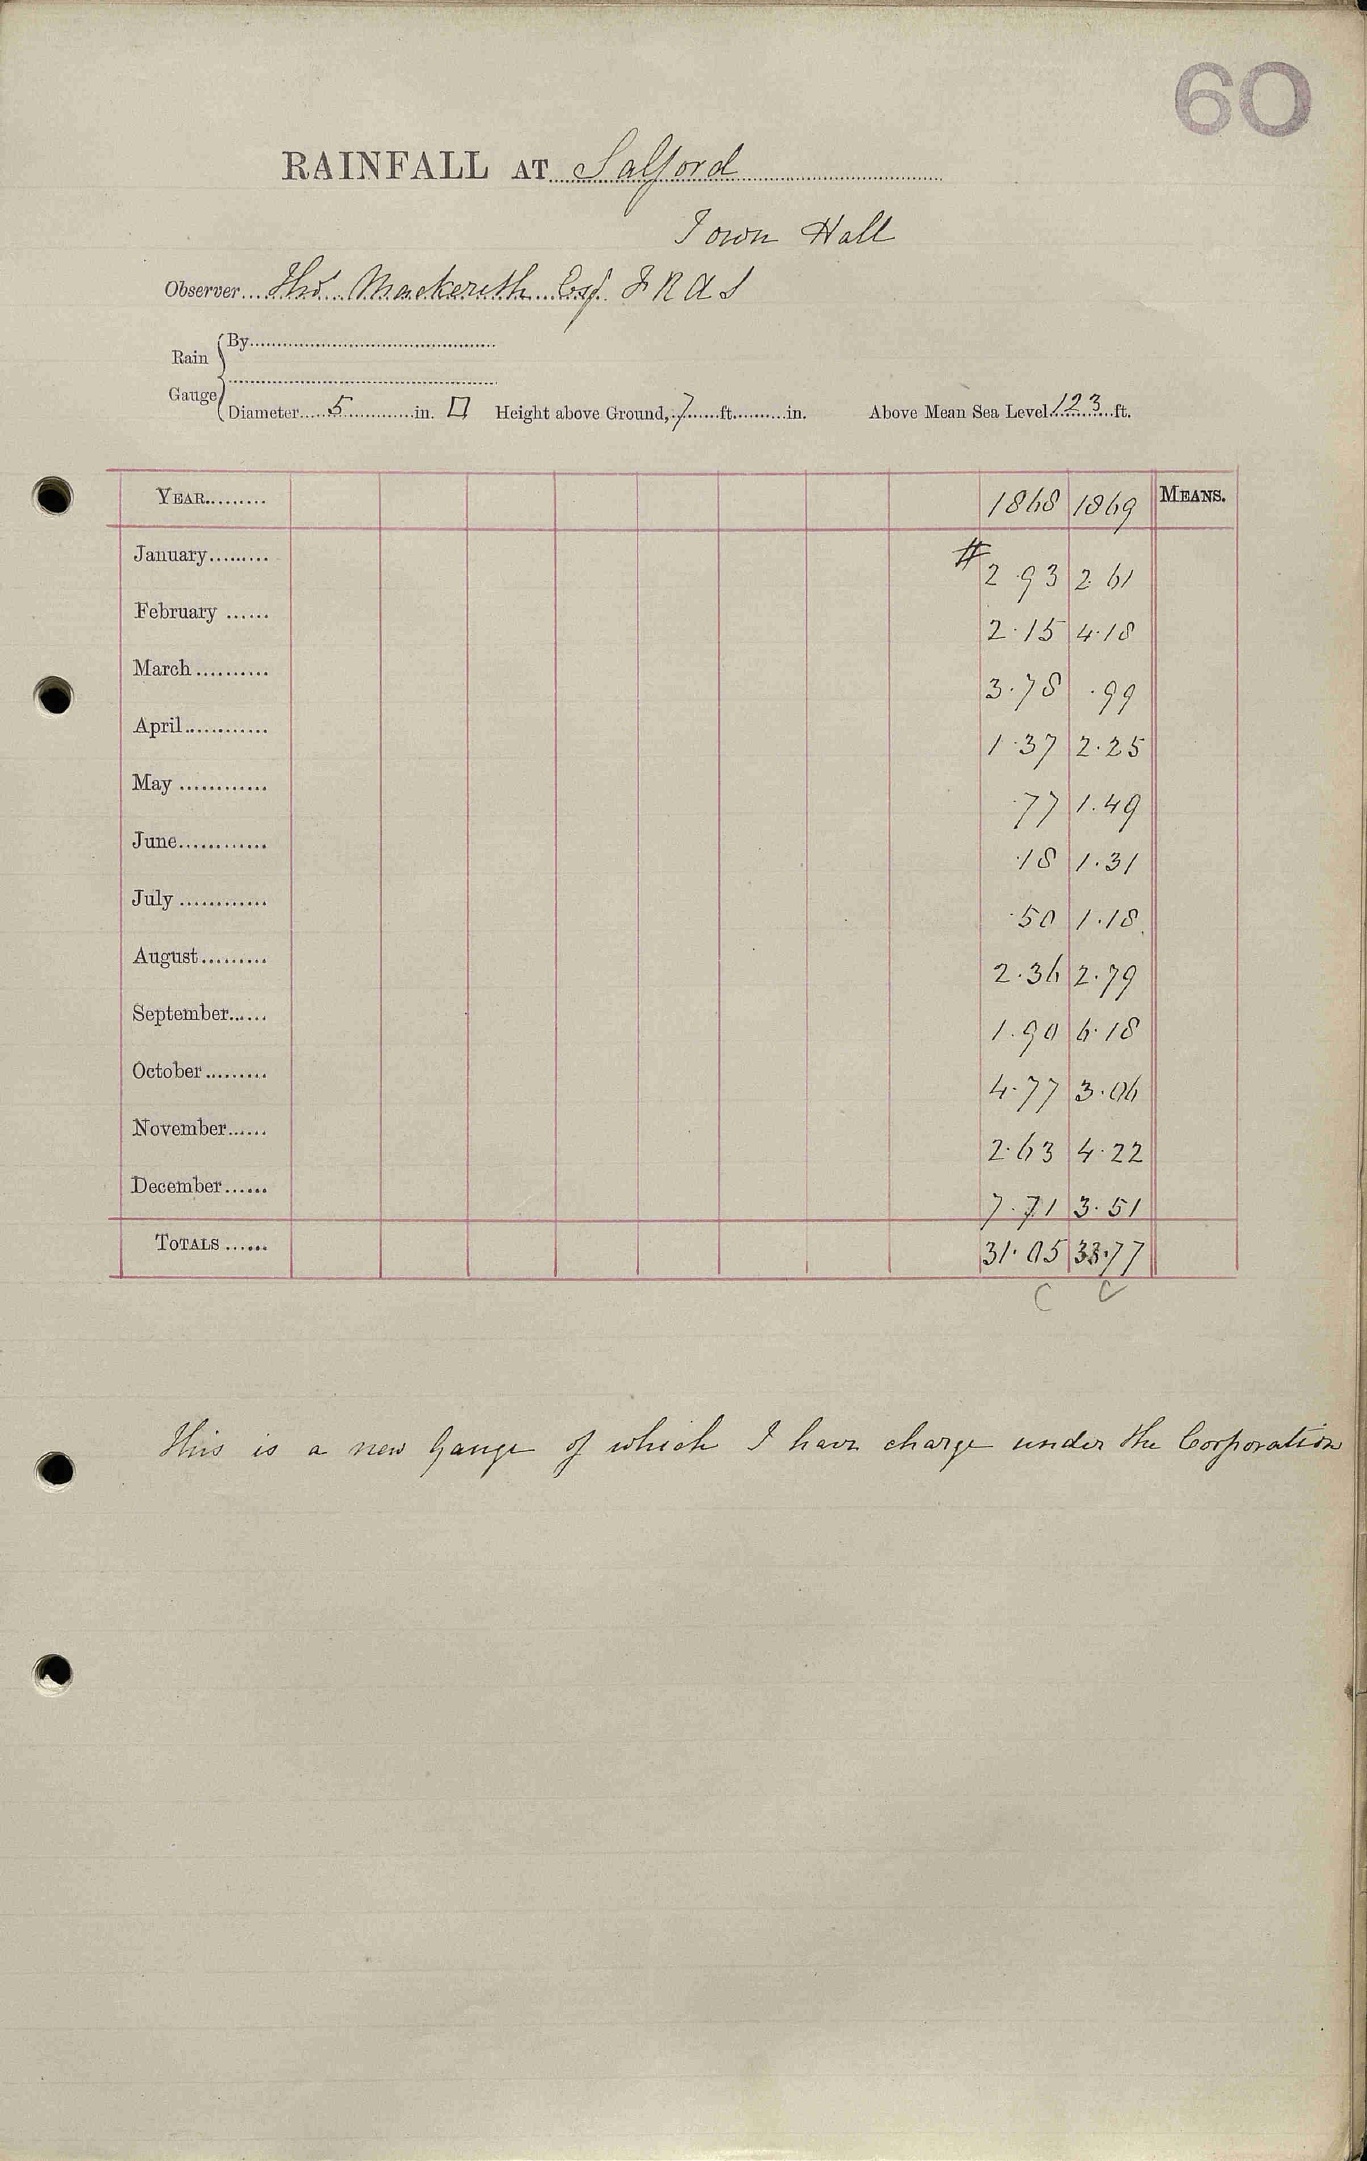 60
RAINFALL AT Salford
Town Hall
Observer... Thos Mackereth Esq. F R A S
Rain Gauge
By
Diameter 5 in. □ Height above Ground, 7 ft. in. Above Mean Sea Level 123 ft.
YEAR 1868 1869 MEANS.
January # 2.93 2.61
February 2.15 4.18
March 3.78 .99
April 1.37 2.25
May .77 1.49
June .18 1.31
July .50 1.18
August 2.36 2.79
September 1.90 6.18
October 4.77 3.06
November 2.63 4.22
December 7.71 3.51
TOTALS 31.05 33.77
C C
This is a new Gauge of which I have charge under the Corporation